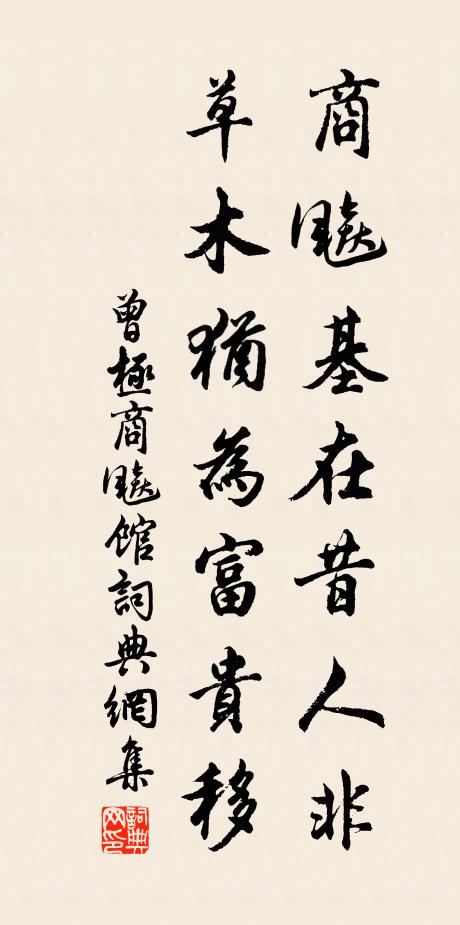 商飇基在昔人非
草木猶為富貴移
曾極商飇館詞典網集
詞典网印